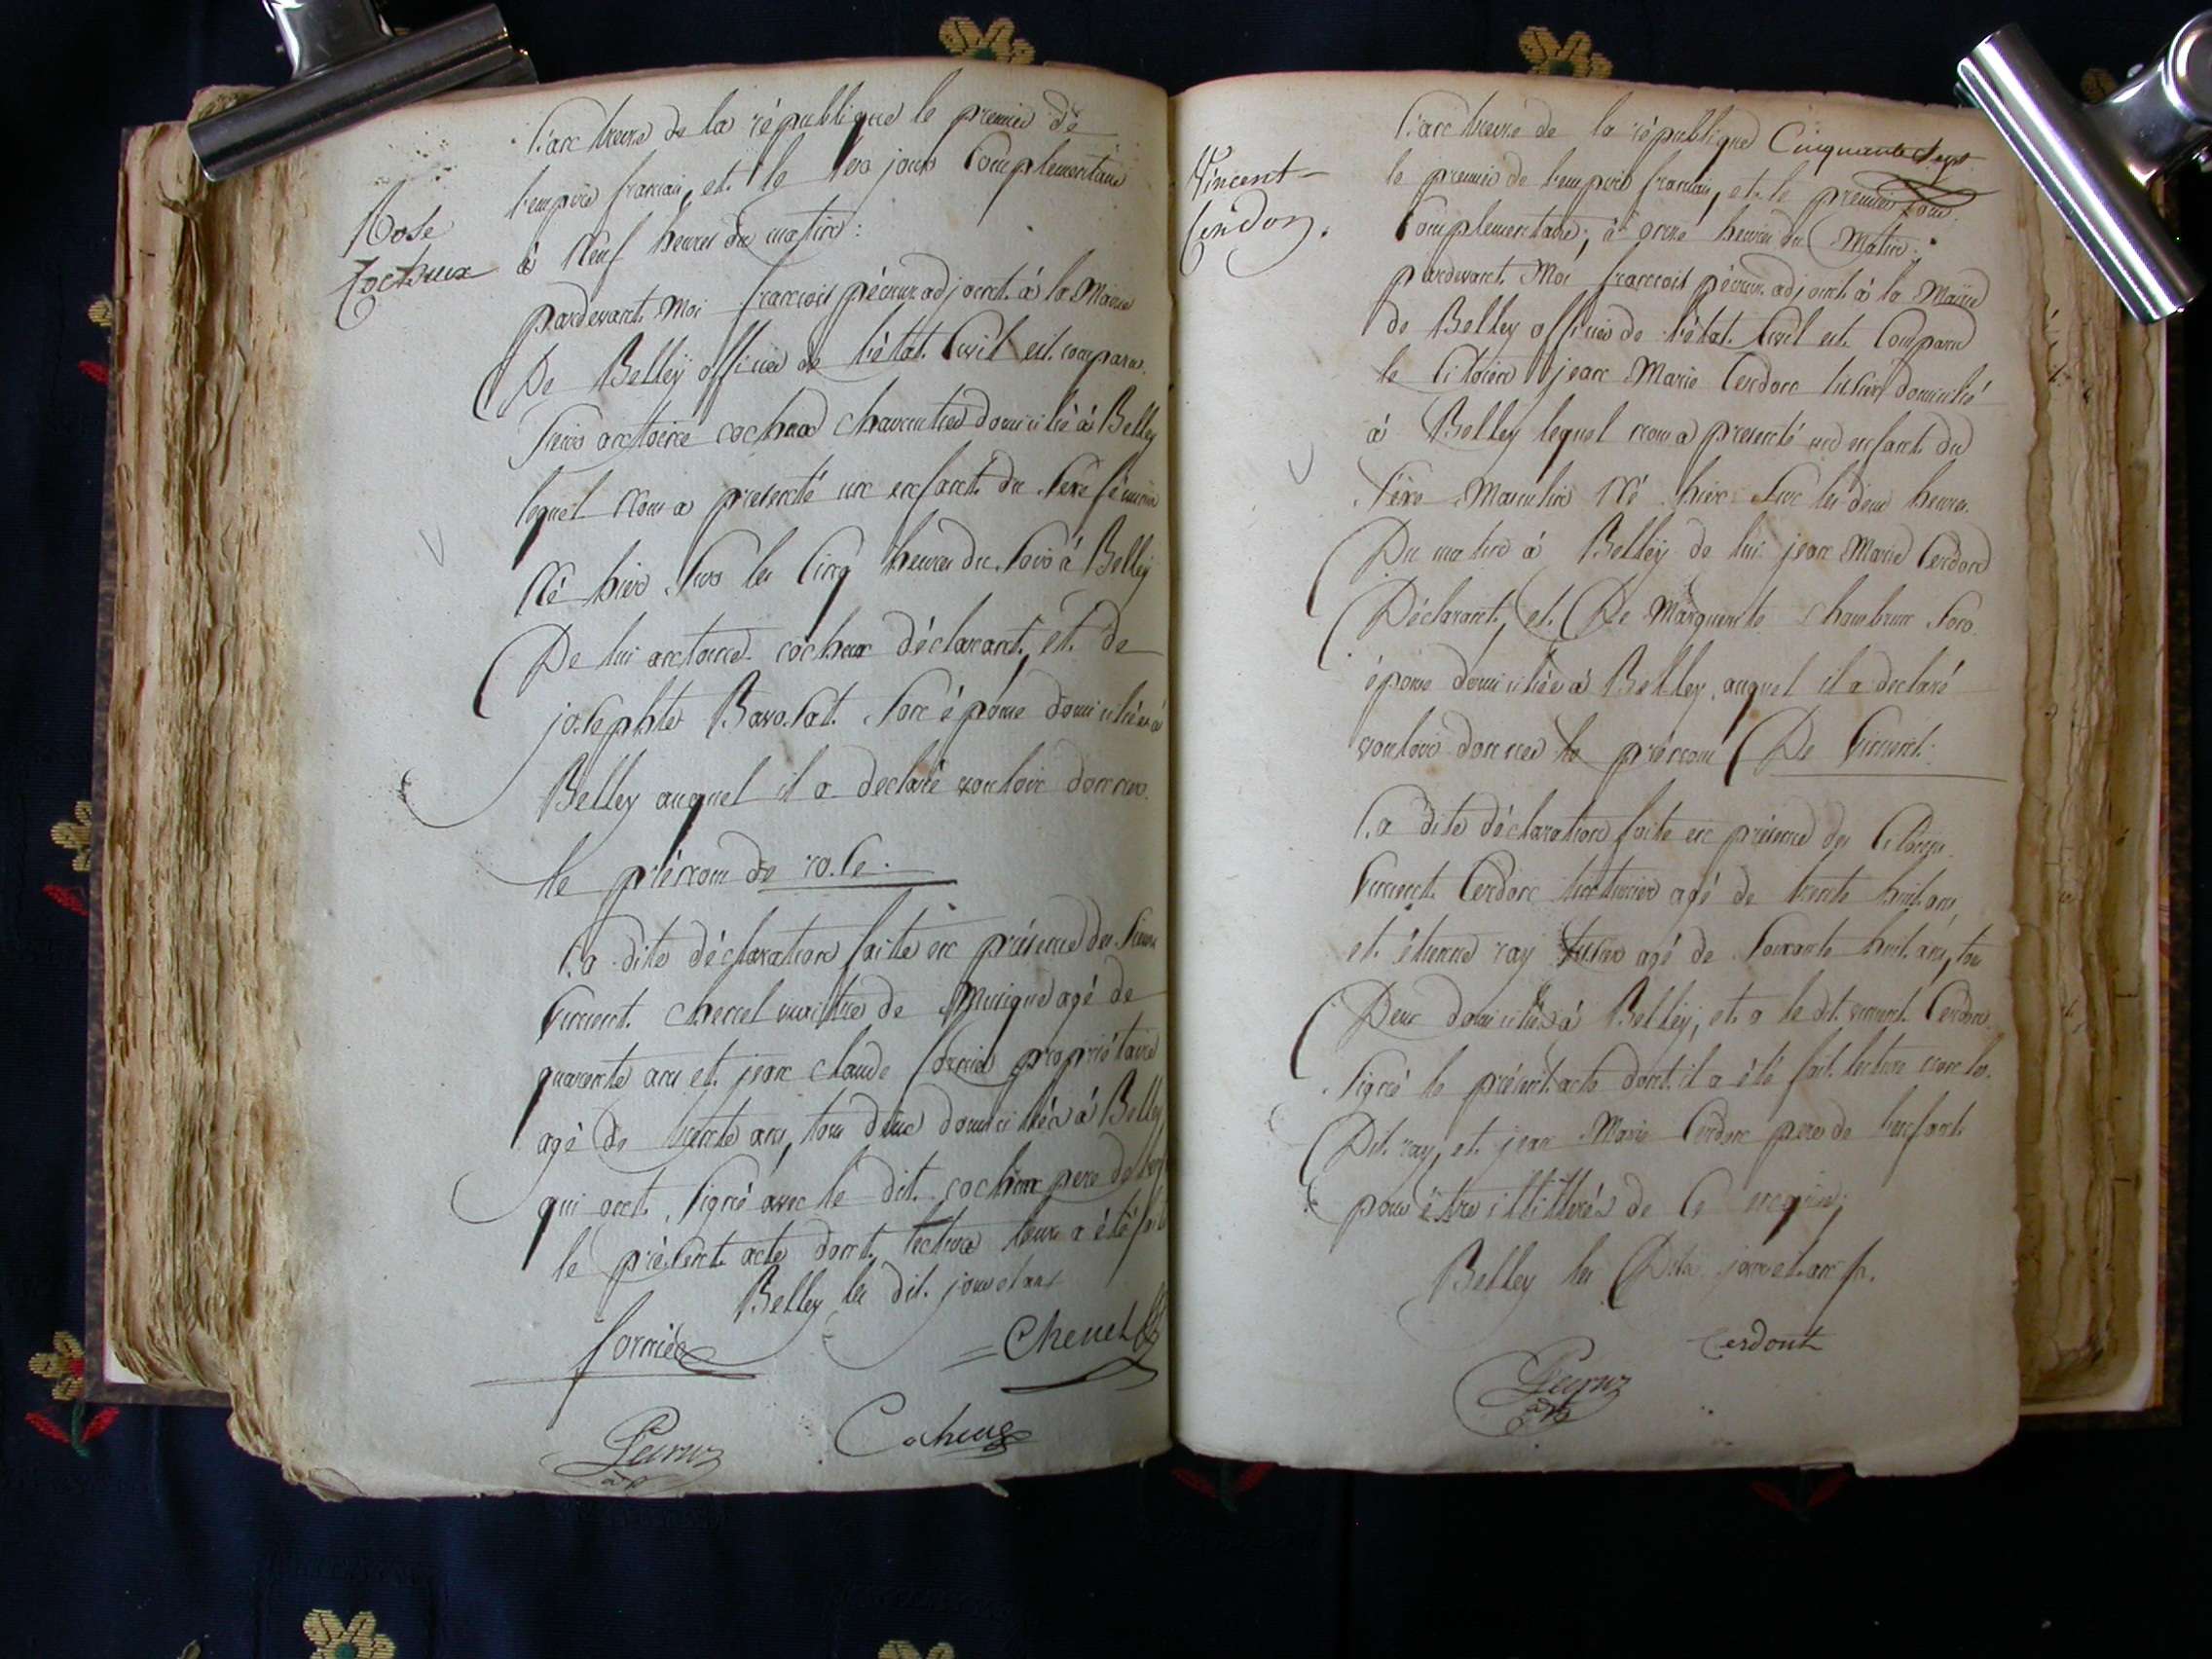 Rose
Cocheux
L'an treize de la république le premier de
l'empire francais, et le 1er jour Complémentaire
à Neuf heures du matin :
pardevant Moi francois péeruz adjoint à la Mairie
De Belley officier de l'état Civil est comparu
Sieur antoine cocheux charentier domicilié à Belley
lequel Nous a présenté un enfant du Sexe féminin
Né hier Sur les Cinq heures du Soir à Belley
De lui antoine cocheux déclarant, et de
josephte Bavosat Son épouse domiciliée à
Belley auquel il a declaré vouloir donner
le prénom de rose.
La dite déclaration faite en présence des Sieurs
Vincent chenel maitre de Musique agé de
quarente ans et jean claude fornier propriétaire
agé De trente ans, tous deux domiciliés à Belley
qui ont Signé avec le dit cocheux pere de
le présent acte dont lecture leur a été
Belley les dit jour et ans
fornier
= Chenel
Cocheux
Vincent
Cerdon.
L'an treize de la république Cinquante Sept
le premier de l'empire francais, et le premier jour
Complementaire, à onze heures du Matin.
pardevant Moi francois péeruz adjoint à la Mairie
de Belley officier de l'état Civil est Comparu
le Citoien jean Marie Cerdon domicilié
à Belley lequel nous a presenté un enfant du
Sexe Masculin Né hier Sur les deux heures
Du matin à Belley de lui jean Marie Cerdon
Déclarant, et De Marguerite Son
épouse domiciliée à Belley, auquel il a declaré
vouloir donner le prénom De Vincent.
La dite déclaration faite en présence des Citoiens
Vincent Cerdon teinturier agé de trente huit ans,
et étienne ray agé de Soixante huit ans, tous
Deux domiciliés à Belley, et a le dt. vincent Cerdon
Signé le présent acte dont il a été fait lecture non les
Dit ray, et jean Marie Cerdon pere de l'enfant
pour être illitterés de Ce enquis,
Belley les Dits jour et an
Cerdont